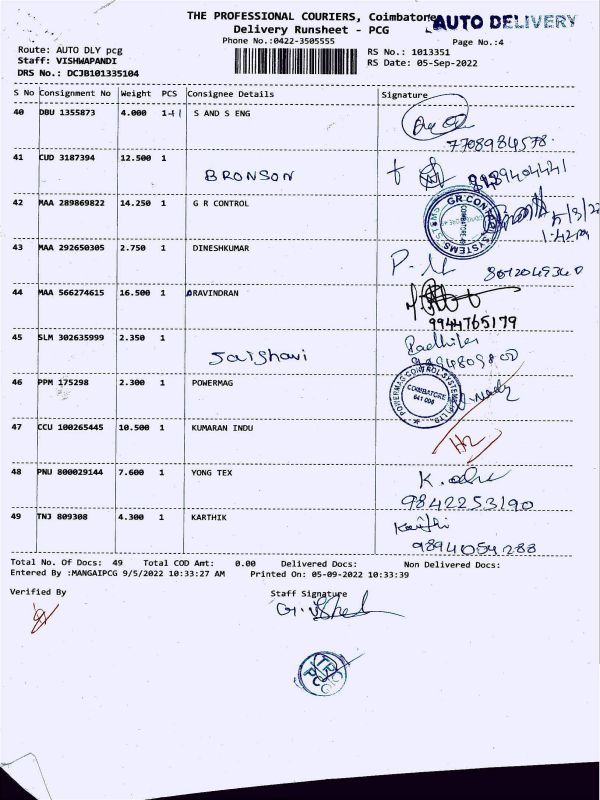 THE PROFESSIONAL COURIERS, Coimbatore AUTO DELIVERY
Delivery Runsheet - PCG
Phone No.:0422-3505555 Page No.:4
Route: AUTO DLY pcg RS No.: 1013351
Staff: VISHWAPANDI RS Date: 05-Sep-2022
DRS No.: DCJB101335104
S No Consignment No Weight PCS Consignee Details Signature
40 DBU 1355873 4.000 1 S AND S ENG
7708984578.
41 CUD 3187394 12.500 1 BRONSON
42 MAA 289869822 14.250 1 G R CONTROL
GR CONTROL SYSTEMS
43 MAA 292650305 2.750 1 DINESHKUMAR
44 MAA 566274615 16.500 1 RAVINDRAN
9944765179
45 SLM 302635999 2.350 1
46 PPM 175298 2.300 1 POWERMAG
POWERMAG CONTROL SYSTEMS
COIMBATORE
47 CCU 100265445 10.500 1 KUMARAN INDU
48 PNU 800029144 7.600 1 YONG TEX
9842253190
49 TNJ 809308 4.300 1 KARTHIK
9894054288
Total No. Of Docs: 49 Total COD Amt: 0.00 Delivered Docs: Non Delivered Docs:
Entered By :MANGAIPCG 9/5/2022 10:33:27 AM Printed On: 05-09-2022 10:33:39
Verified By Staff Signature